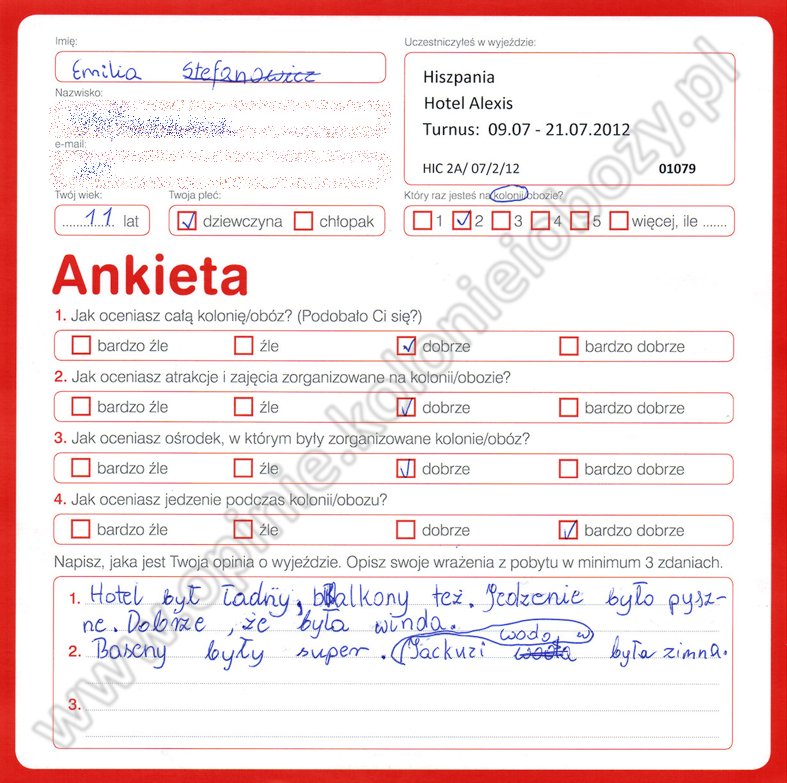 Imię:
Emilia Stefanowicz
Uczestniczyłeś w wyjeździe:
Hiszpania
Hotel Alexis
Turnus: 09.07 - 21.07.2012
HIC 2A/ 07/2/12 01079
Nazwisko:
e-mail:
Twój wiek:
11 lat
Twoja płeć:
dziewczyna chłopak
Który raz jesteś na kolonii/obozie?
1 2 3 4 5 więcej, ile .......
Ankieta
1. Jak oceniasz całą kolonię/obóz? (Podobało Ci się?)
bardzo źle źle dobrze bardzo dobrze
2. Jak oceniasz atrakcje i zajęcia zorganizowane na kolonii/obozie?
bardzo źle źle dobrze bardzo dobrze
3. Jak oceniasz ośrodek, w którym były zorganizowane kolonie/obóz?
bardzo źle źle dobrze bardzo dobrze
4. Jak oceniasz jedzenie podczas kolonii/obozu?
bardzo źle źle dobrze bardzo dobrze
Napisz, jaka jest Twoja opinia o wyjeździe. Opisz swoje wrażenia z pobytu w minimum 3 zdaniach.
1. Hotel był ładny, balkony też. Jedzenie było pysz-
ne. Dobrze, że była winda.
woda w
2. Baseny były super. (Jackuzi woda była zimna.
3.
www.opinie.kolonieiobozy.pl